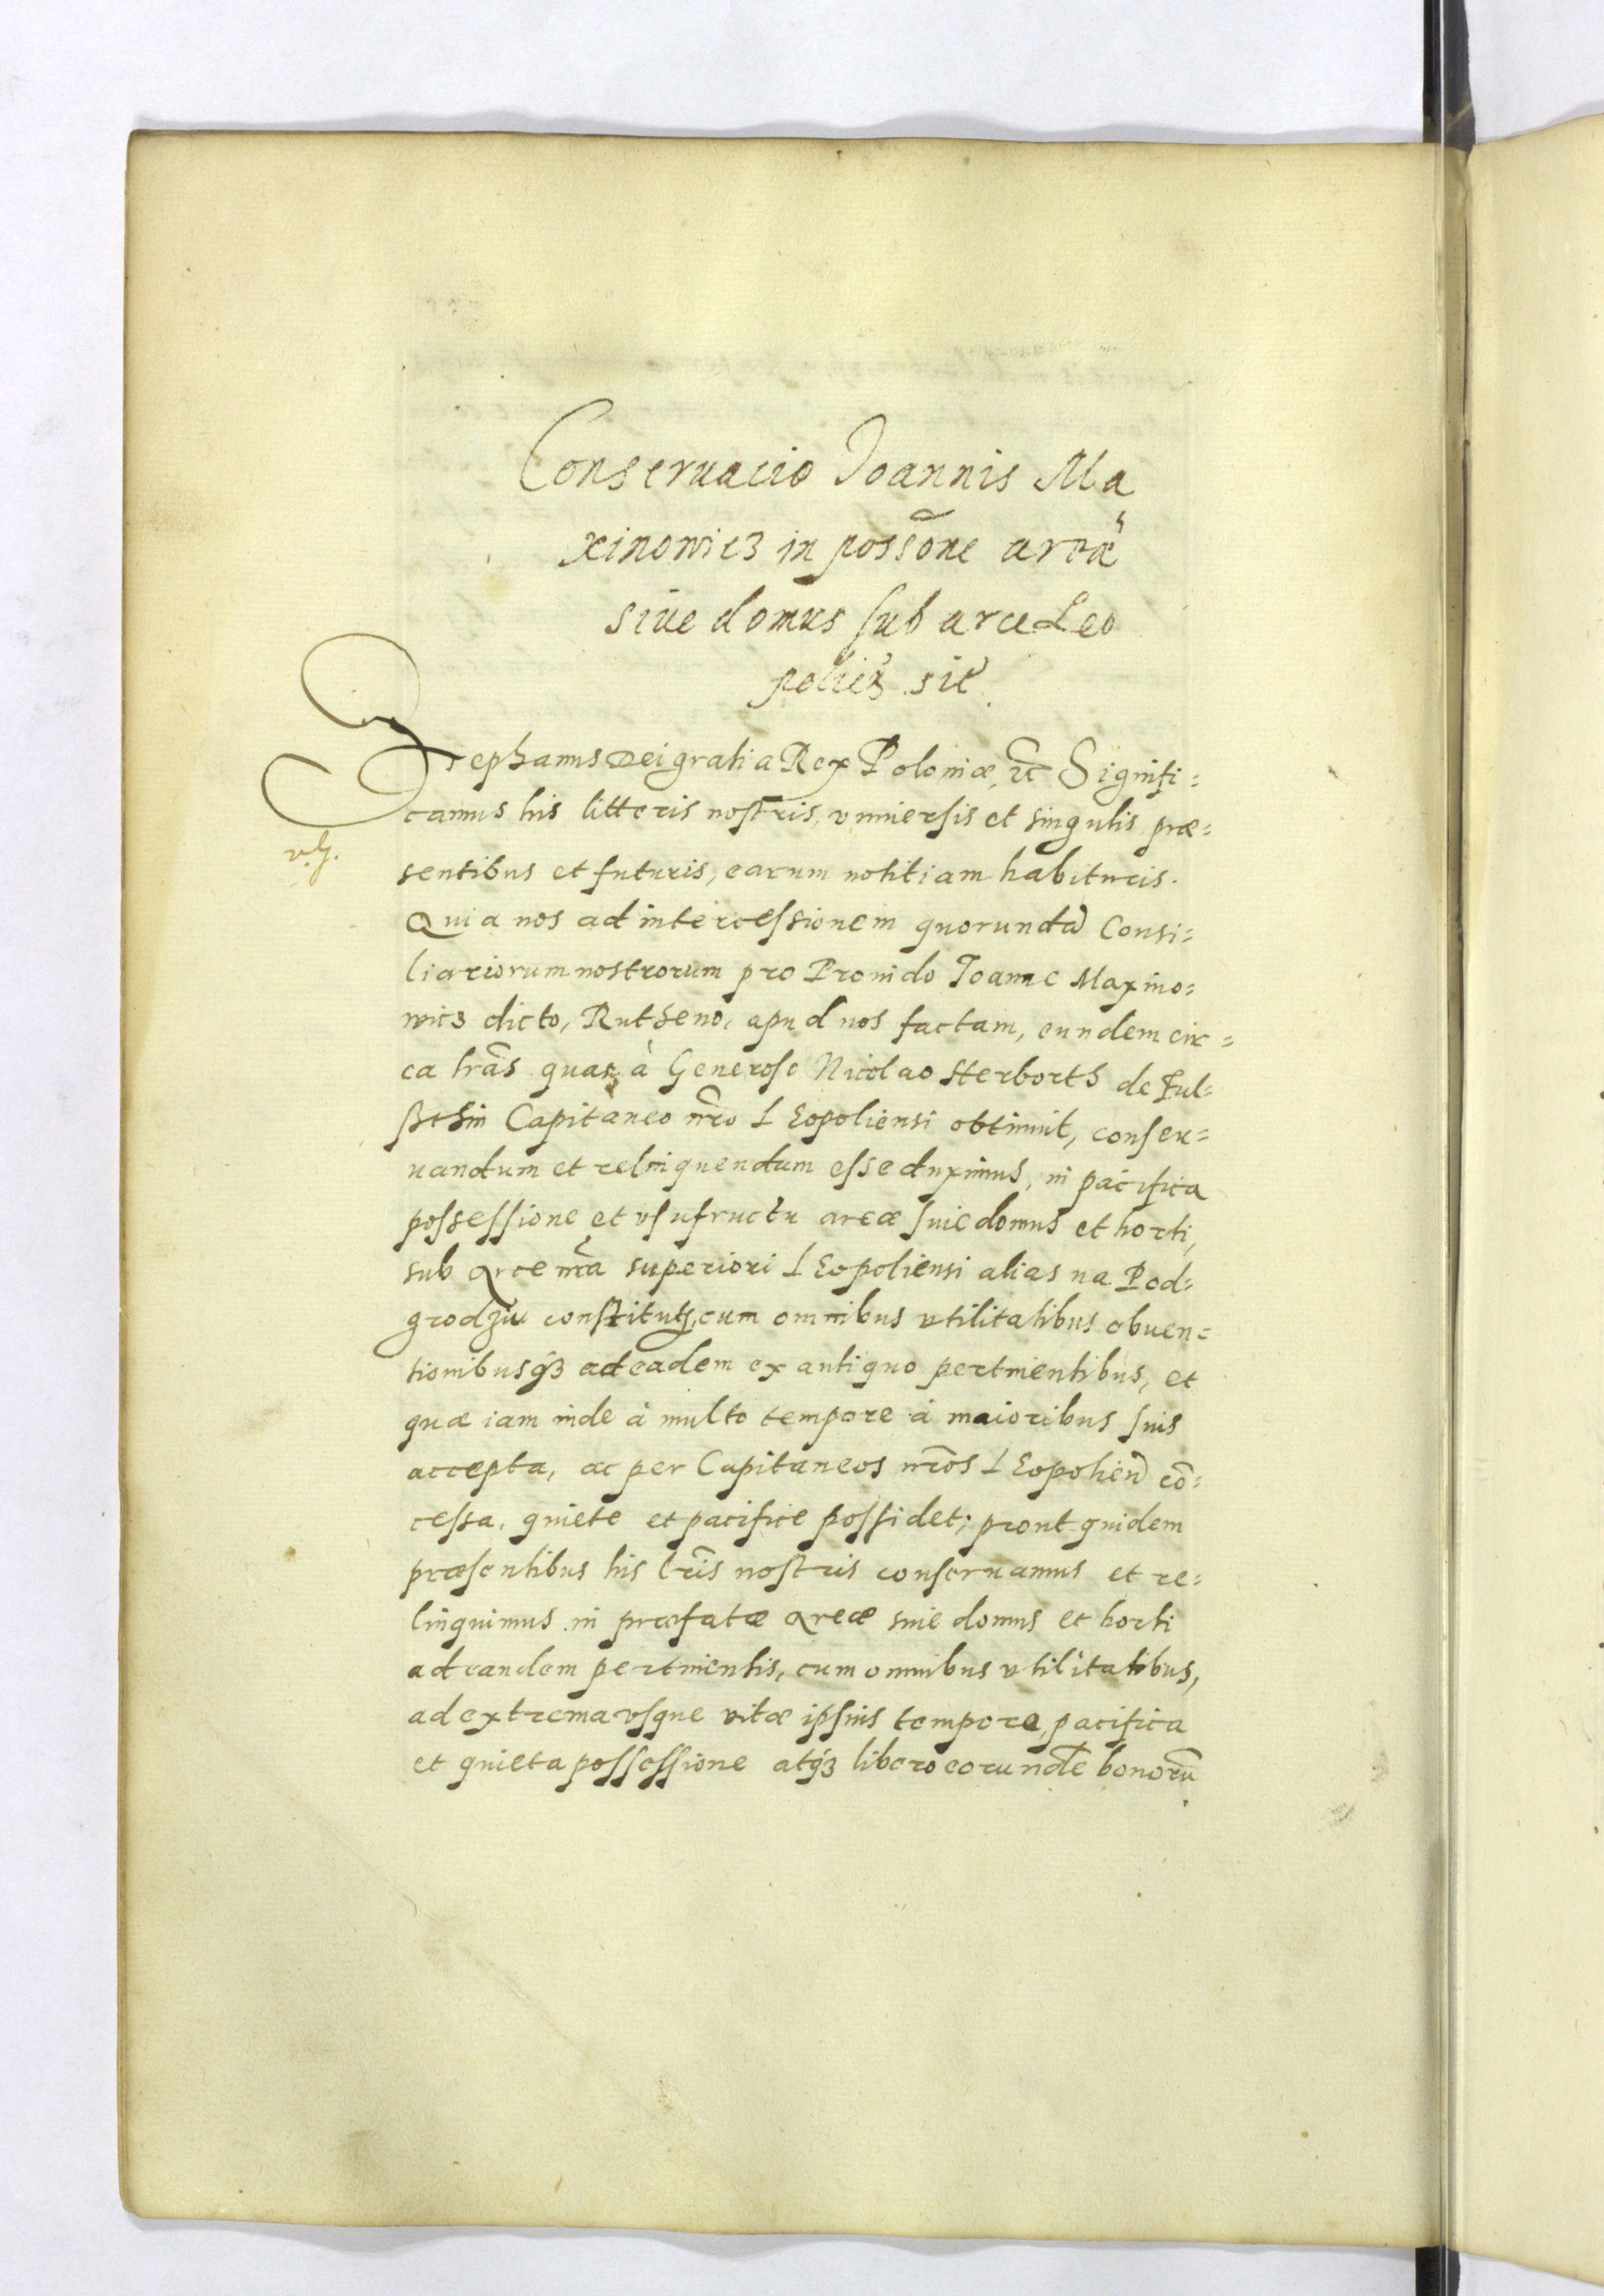 Conseruacio Joannis Ma
xinowicz in possōne areæ
siue domus sub arce Leo
polieñ sit
Stephanus Dei gratia Rex Poloniæ, etc̃ Signifi=
camus his litteris nostris, vniuersis et singulis præ=
v.g.
sentibus et futuris, earum notitiam habituris.
Quia nos ad intercessionem quorundã Consi=
liariorum nostrorum pro Prouido Joanne Maxino=
wicz dicto, Rutheno, apud nos factam, eundem cir=
ca lrãs quas à Generoso Nicolao Herborth de Ful=
sthin Capitaneo nr̃o LEopoliensi obtinuit, conser=
uandum et relinquendum esse duximus, in pacifica
possessione et vsufructu areæ siue domus et horti,
sub Arce nr̃a superiori LEopoliensi alias na Pod=
grodziu constitutę, cum omnibus vtilitatibus obuen=
tionibusq́ȝ ad eadem ex antiquo pertinentibus, et
quæ iam inde à multo tempore à maioribus suis
accepta, ac per Capitaneos nr̃os LEopolieñ cõ=
cessa, quiete et pacifice possidet; prout quidem
præsentibus his lr̃is nostris conseruamus et re=
linquimus in præfatæ Areæ siue domus et horti
ad eandem pertinentis, cum omnibus vtilitatibus,
ad extrema vsque vitæ ipsius tempora, pacifica
et quieta possessione atq́ȝ libero eorundẽ bonorũ